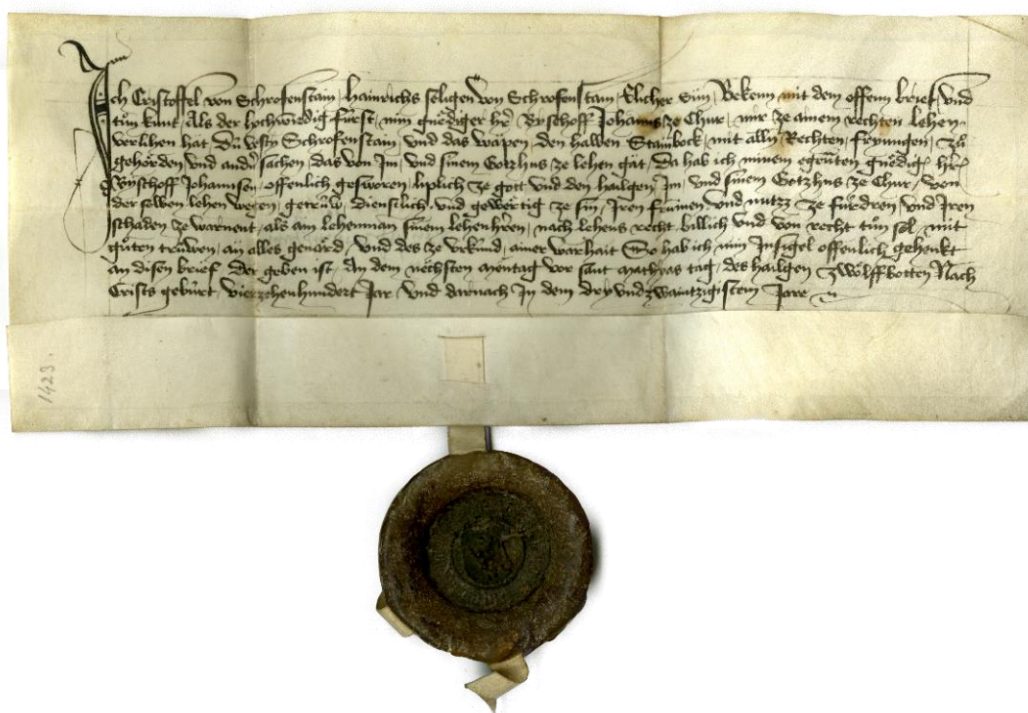 Ich Cristoffel von Schrofenstain, Hainrichs seligen von Schrofenstain Elicher Sun, Bekenn mit dem offenn brief und
tůn kunt Als der hochwirdig fürst, min gnediger hr̄e Byschoff Johanns ze Chur, mir ze ainem rechten lehen
verlihen hat Dü vesty Schrofenstain, und das wäpen, den halben Stainbock, mit allen Rechten, fryungen, zů
gehörden und andn̄ sachen das von Im, und sinem Gotzhus ze lehen gät, Da hab ich minem egenten gnedigen hr̄e
Byschoff Johannsen, offenlich gesworen, liplich ze gott und den hailgen Im, und sinem Gotzhus ze Chur, von
der selben lehen wegen, getrüw, dienstlich, und gewertig ze sin, Iren frumen und nutzz ze fürdren, und Iren
schaden ze warnent, als ain lehenman sinem lehenhr̄en, nach lehens recht billich und von recht tůn sol, mit
gůten trüwen, än alles geuärd, Und des ze Urkund, ainer warhait So hab ich min Insigel offenlich gehenkt
an disen brief Der geben ist, An dem nechsten mentag vor sant Mathyas tag, des hailgen zwölffbotten Nach
Crists gebürt, vierzehenhundert Jar, und darnach In dem dryundzwaintzigistem Jare
1423.